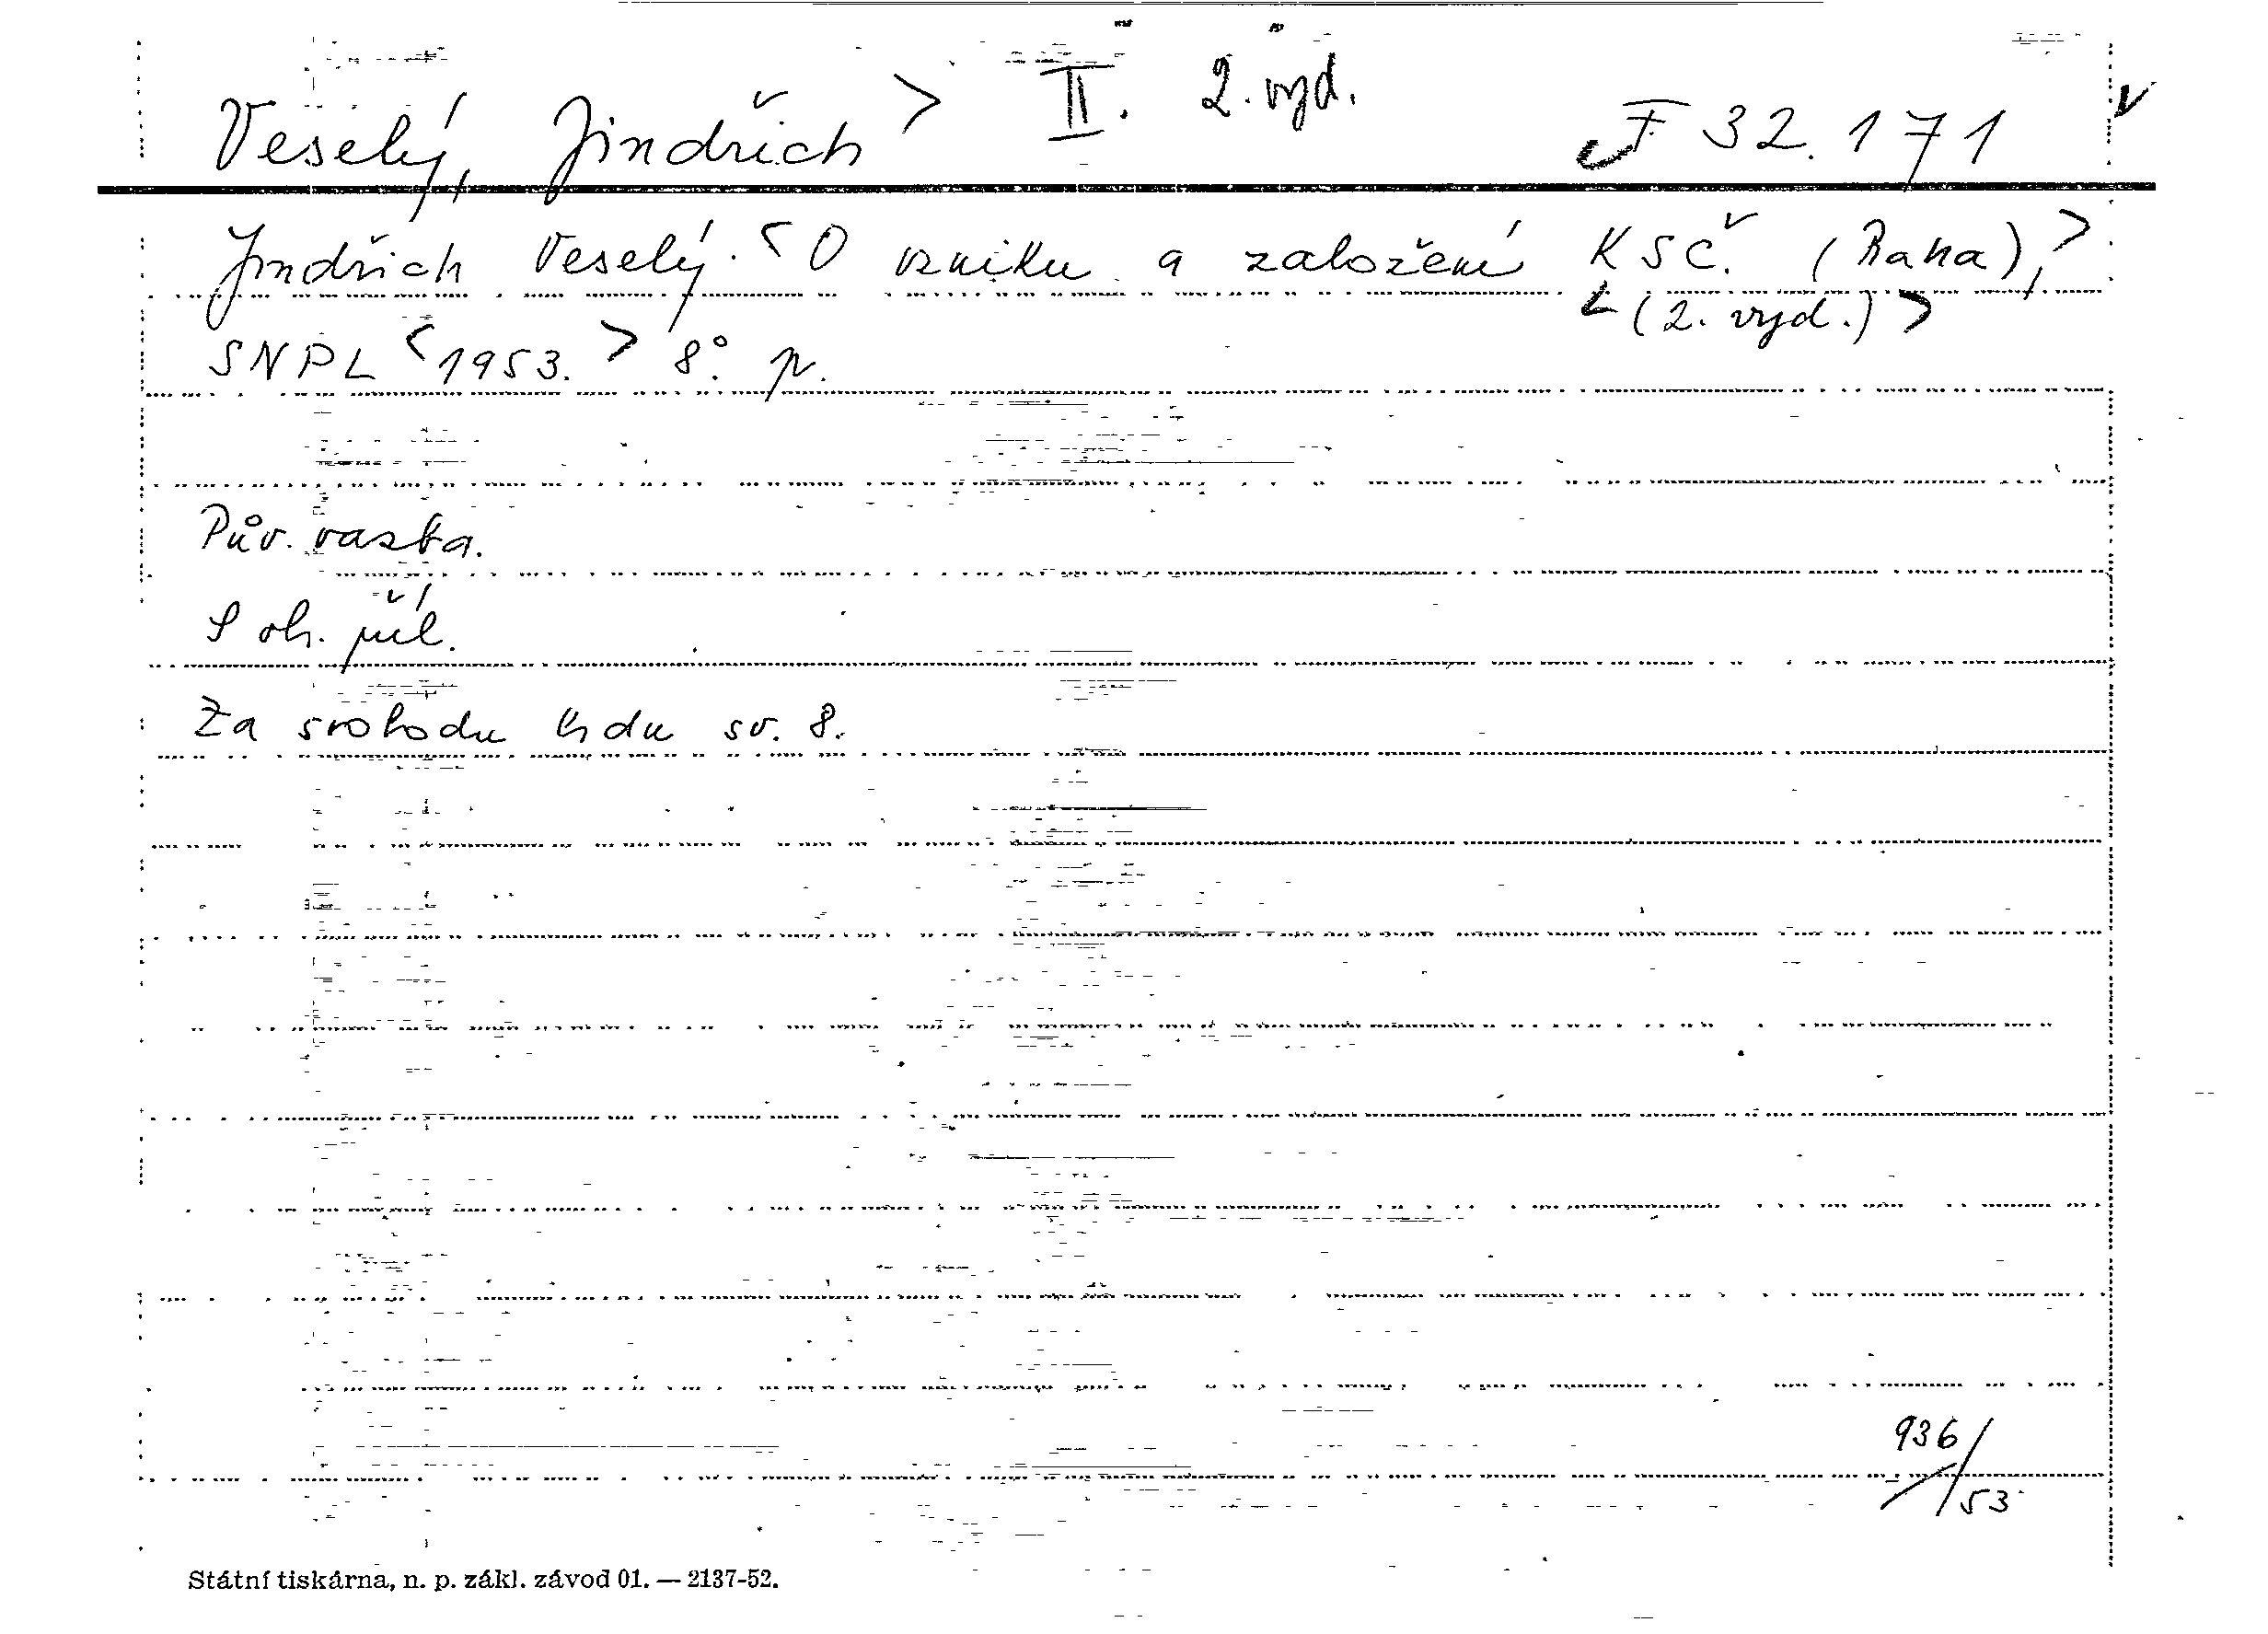 Veselý, Jindřich > II. 2. vyd. F 32.171 v
Jindřich Veselý. < O vzniku a založení KSČ. (Praha), >
< (2. vyd.) >
SNPL < 1953. > 8°. p.
Pův. vazba.
S ob. příl.
Za svobodu lidu sv. 8.
936/53
Státní tiskárna, n. p. zákl. závod 01. — 2137-52.